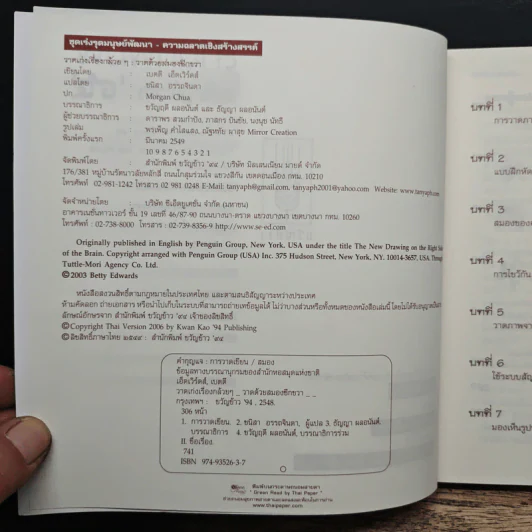 ชุดเร่งรุดมนุษย์พัฒนา - ความฉลาดเชิงสร้างสรรค์
วาดเก่งเรื่องกล้วย ๆ : วาดด้วยสมองซีกขวา
เขียนโดย : เบตตี เอ็ดเวิร์ดส์
แปลโดย : ขนิสา อรรถจินดา
ปก : Morgan Chua
บรรณาธิการ : ขวัญฤดี ผลอนันต์ และ ธัญญา ผลอนันต์
ผู้ช่วยบรรณาธิการ : ดาราพร
รูปเล่ม : พรเพ็ญ คำไสแสง, Mirror Creation
พิมพ์ครั้งแรก : มีนาคม 2549
10 9 8 7 6 5 4 3 2 1
จัดพิมพ์โดย : สำนักพิมพ์ ขวัญข้าว '๙๔ / บริษัท มิลเลนเนียม มายด์ จำกัด
176/381 หมู่บ้านรัตนาวลัยหลักสี่ ถนนโกสุมร่วมใจ แขวงสีกัน เขตดอนเมือง กทม. 10210
โทรศัพท์ 02-981-1242 โทรสาร 02 981 0248 E-Mail: tanyaph@gmail.com, tanyaph2001@yahoo.com Website: www.tanyaph
จัดจำหน่ายโดย : บริษัท ซีเอ็ดยูเคชั่น จำกัด (มหาชน)
อาคารเนชั่นทาวเวอร์ ชั้น 19 เลขที่ 46/87-90 ถนนบางนา-ตราด แขวงบางนา เขตบางนา กทม. 10260
โทรศัพท์ : 02-738-8000 โทรสาร : 02-739-8356-9 http://www.se-ed.com
Originally published in English by Penguin Group, New York, USA under the title The New Drawing on the Right Side
of the Brain. Copyright arranged with Penguin Group (USA) Inc. 375 Hudson Street, New York, NY. 10014-3657, USA. Through
Tuttle-Mori Agency Co. Ltd.
©2003 Betty Edwards
หนังสือสงวนสิทธิ์ตามกฎหมายในประเทศไทย และตามสนธิสัญญาระหว่างประเทศ
ห้ามคัดลอก ถ่ายเอกสาร หรือนำไปเก็บในระบบที่สามารถถ่ายเทข้อมูลได้ ไม่ว่าบางส่วนหรือทั้งหมดของหนังสือเล่มนี้ โดยไม่ได้รับอนุญาตเป็น
ลักษณ์อักษรจาก สำนักพิมพ์ ขวัญข้าว '๙๔ เจ้าของลิขสิทธิ์
©Copyright Thai Version 2006 by Kwan Kao '94 Publishing
©ลิขสิทธิ์ภาษาไทย ๒๕๔๙ : สำนักพิมพ์ ขวัญข้าว '๙๔
คำกุญแจ : การวาดเขียน / สมอง
ข้อมูลทางบรรณานุกรมของสำนักหอสมุดแห่งชาติ
เอ็ดเวิร์ดส์, เบตตี
วาดเก่งเรื่องกล้วยๆ _ วาดด้วยสมองซีกขวา _ _
กรุงเทพฯ : ขวัญข้าว '94 , 2548.
306 หน้า
1. การวาดเขียน. 2. ขนิสา อรรถจินดา, ผู้แปล 3. ธัญญา ผลอนันต์,
บรรณาธิการ 4. ขวัญฤดี ผลอนันต์, บรรณาธิการร่วม
II. ชื่อเรื่อง.
741
ISBN 974-93526-3-7
" Green Read by Thai Paper "
www.thaipaper.com
บทที่ 1
การวาดภา
บทที่ 2
แบบฝึกหัด
บทที่ 3
สมองของ
บทที่ 4
การไขว้กัน
บทที่ 5
วาดภาพจา
บทที่ 6
ใช้ระบบสัญ
บทที่ 7
มองเห็นรูป